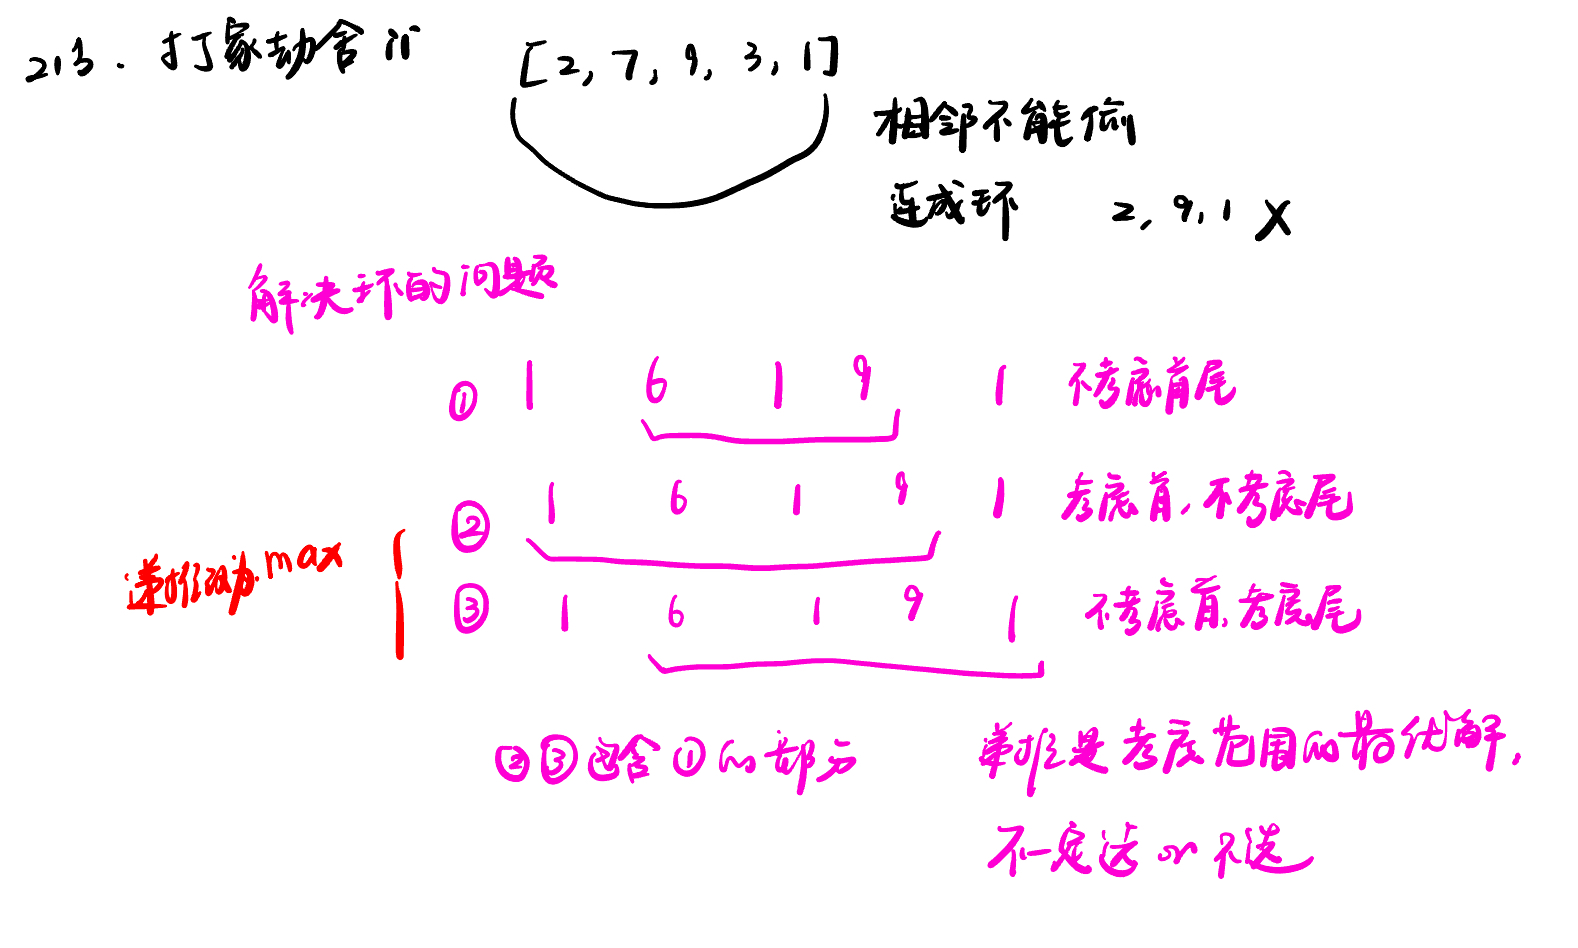 213. 打家劫舍 ii
[2, 7, 9, 3, 1]
相邻不能偷
连成环 2, 9, 1 X
解决环的问题
① 1 6 1 9 1 不考虑首尾
② 1 6 1 9 1 考虑首,不考虑尾
③ 1 6 1 9 1 不考虑首,考虑尾
递推 max
②③包含①的部分
递推是考虑范围的最优解,
不一定选 or 不选